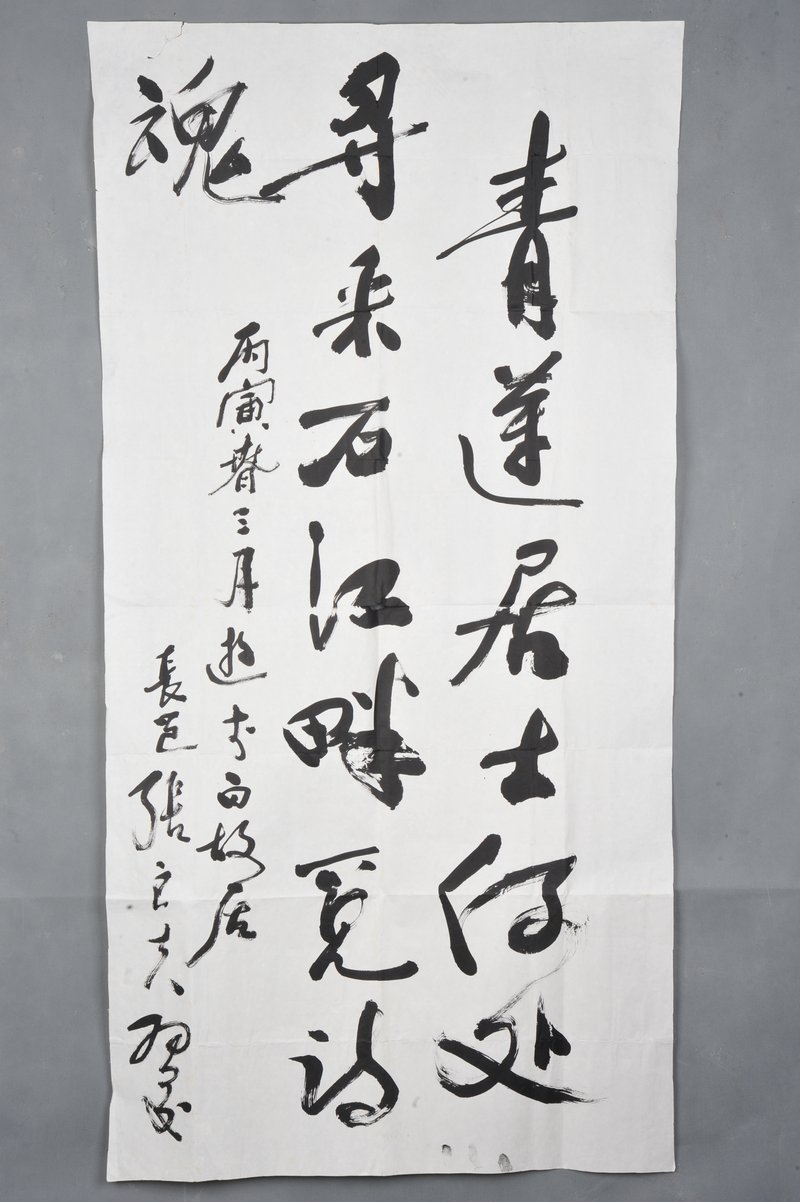 青莲居士何处
寻采石江畔觅诗
魂
丙寅春三月游李白故居
长邑张良夫